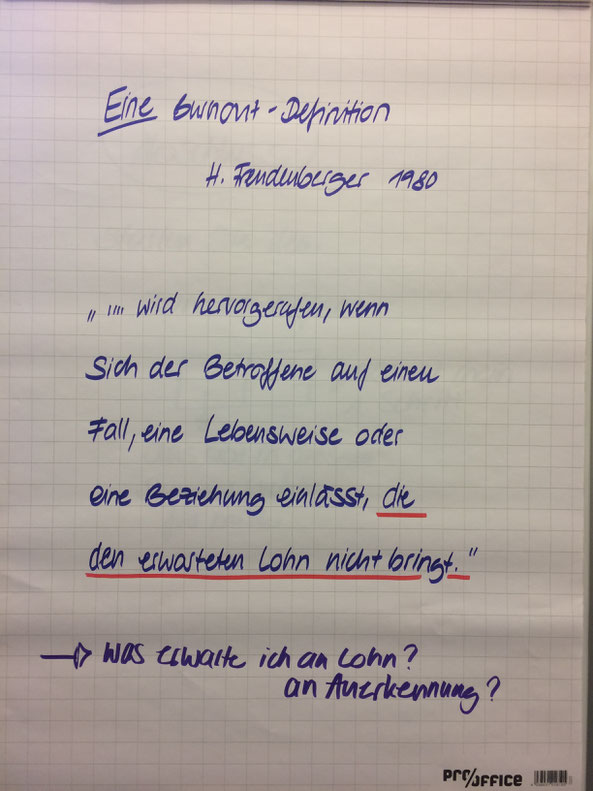 Eine Burnout - Definition
H. Freudenberger 1980
".... wird hervorgerufen, wenn
Sich der Betroffene auf einen
Fall, eine Lebensweise oder
eine Beziehung einlässt, die
den erwarteten Lohn nicht bringt."
→ Was erwarte ich an Lohn?
an Anerkennung?
PRO/OFFICE